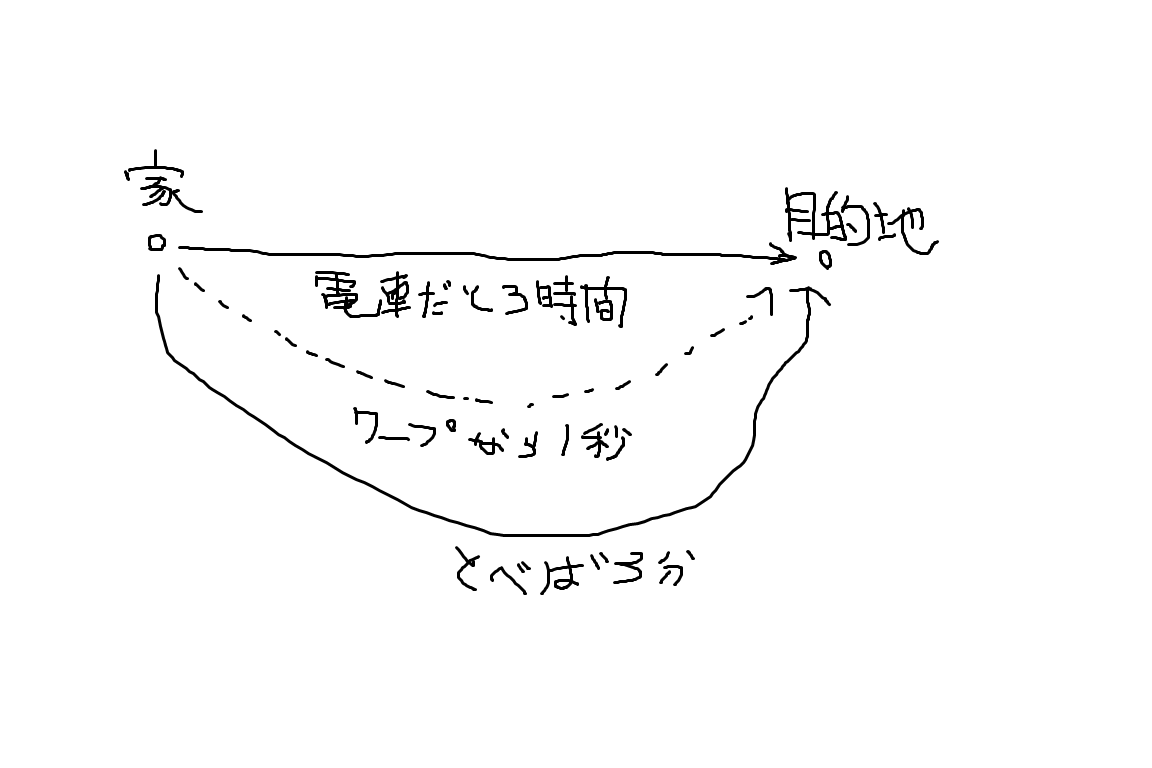 家
目的地
電車だと3時間
ワープなら1秒
とべば3分